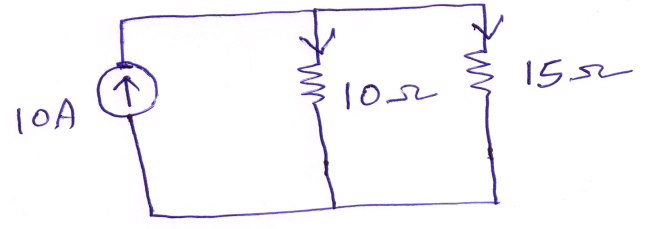 10A
10Ω
15Ω